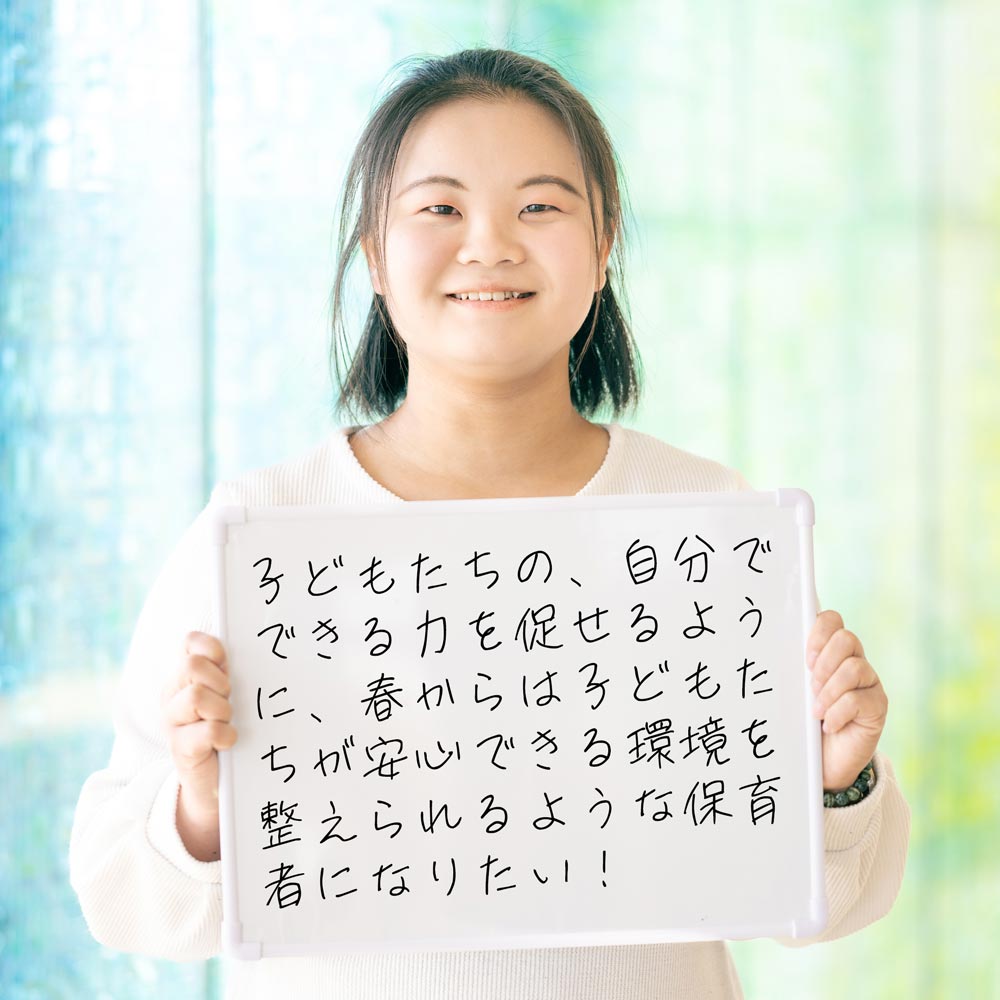 子どもたちの、自分で
できる力を促せるよう
に、春からは子どもた
ちが安心できる環境を
整えられるような保育
者になりたい！